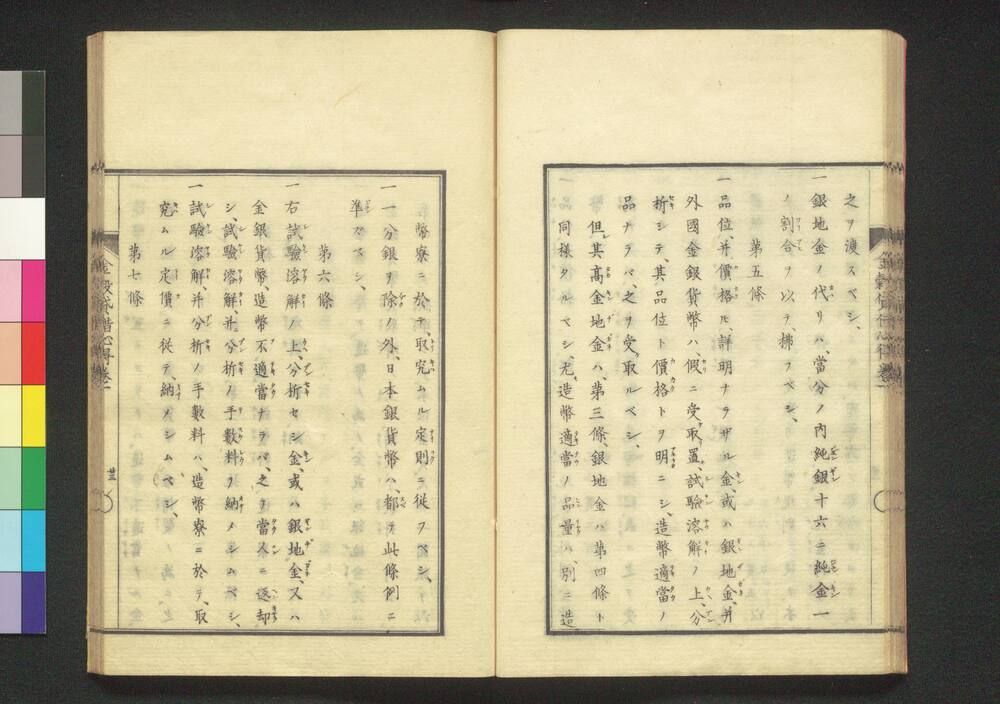 之ヲ渡スベシ、
一銀地金ノ代リハ、當分ノ內純銀十六ニ純金一
ノ割合ヲ以テ、拂フベシ、
第五條
一品位、幷價格ノ、詳明ナラザル金、或ハ銀地金、幷
外國金銀貨幣ハ、假ニ受取置、試驗溶解ノ上、分
析シテ、其品位ト價格トヲ明ニシ、造幣適當ノ
品ナラバ、之ヲ受取ルベシ、
但、其高金地金ハ、第三條、銀地金ハ第四條ト
同樣タルベシ、尤造幣適當ノ品量ハ、別ニ造
幣寮ニ於テ、取究ムル定則ニ從フベシ、
一一分銀ヲ除ノ外、日本銀貨幣ハ、都テ此條例ニ
準ズベシ、
第六條
一右試驗溶解ノ上、分析セシ金、或ハ銀地金、又ハ
金銀貨幣、造幣不適當ナラバ、之ヲ當人ニ返却
シ、試驗溶解、幷分析ノ手數料ヲ納メシムベシ、
一試驗溶解、幷分析ノ手數料ハ、造幣寮ニ於テ、取
究ムル定價ニ從テ、納メシムベシ、
第七條
卷一
廿三